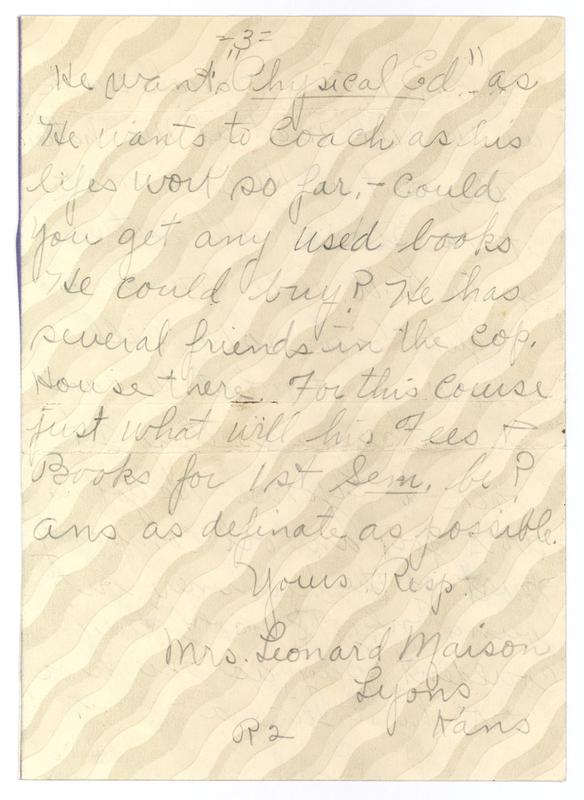 -3-
He wants "Physical Ed." as
He wants to Coach as his
lifes work so far,- Could
you get any used books
He could buy? He has
several friends in the cop.
House there. For this Course
just what will his Fees &
Books for 1st Sem. be?
ans as definate as possible.
Yours Resp.
Mrs. Leonard Maison
Lyons
R2 Kans